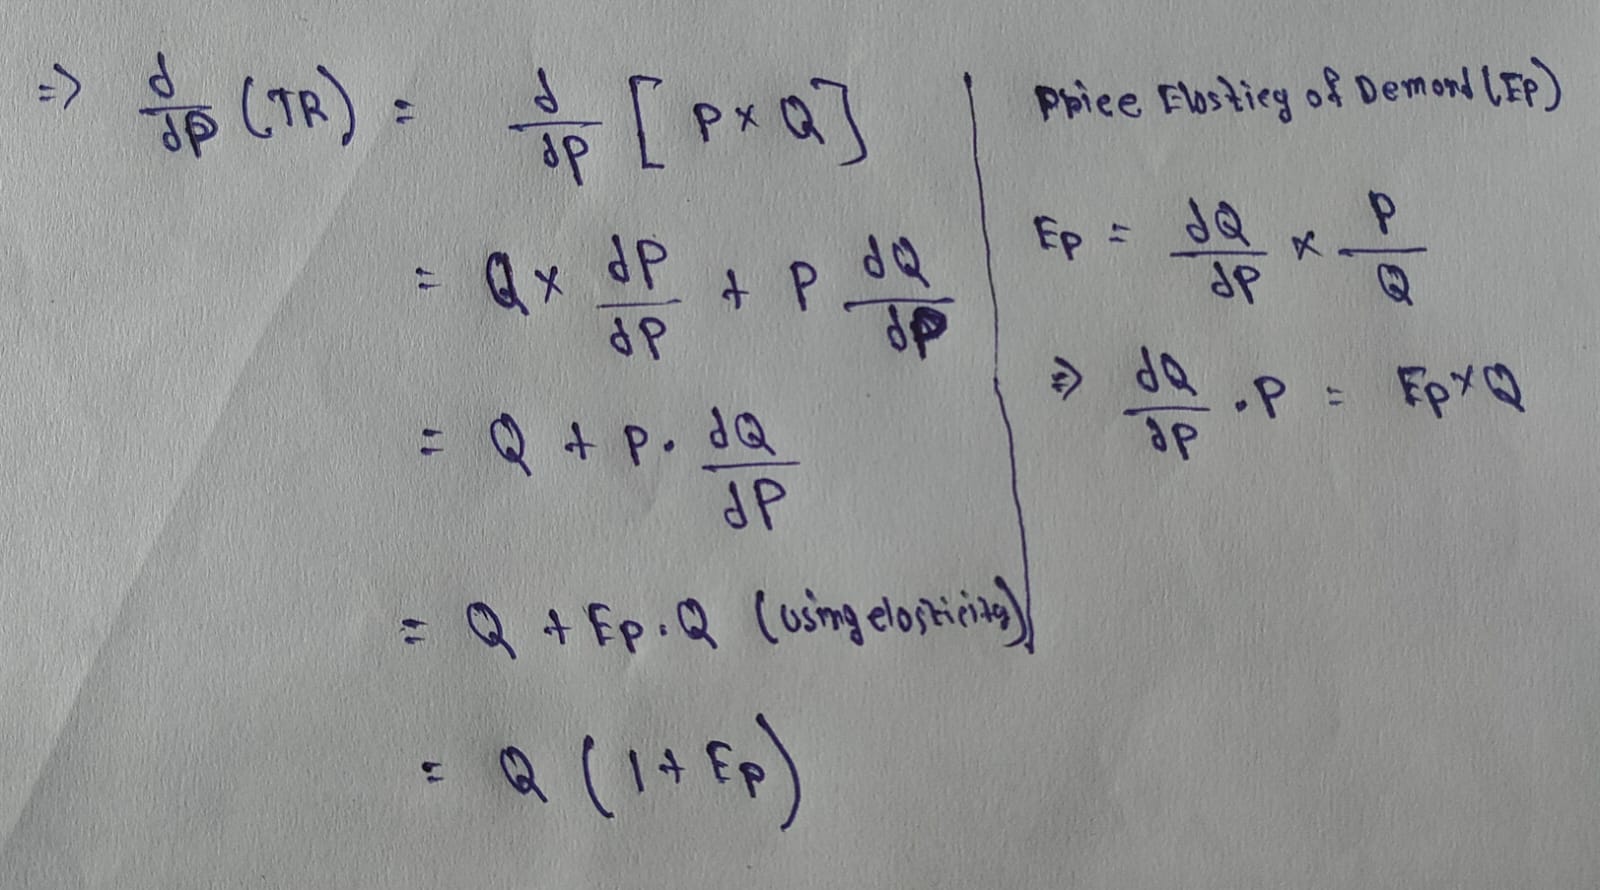 => d/dP (TR) = d/dP [ P × Q ]
= Q × dP/dP + P dQ/dP
= Q + P . dQ/dP
= Q + Ep . Q (using elasticity)
= Q ( 1 + Ep )
Price Elasticy of Demand (Ep)
Ep = dQ/dP × P/Q
=> dQ/dP . P = Ep × Q